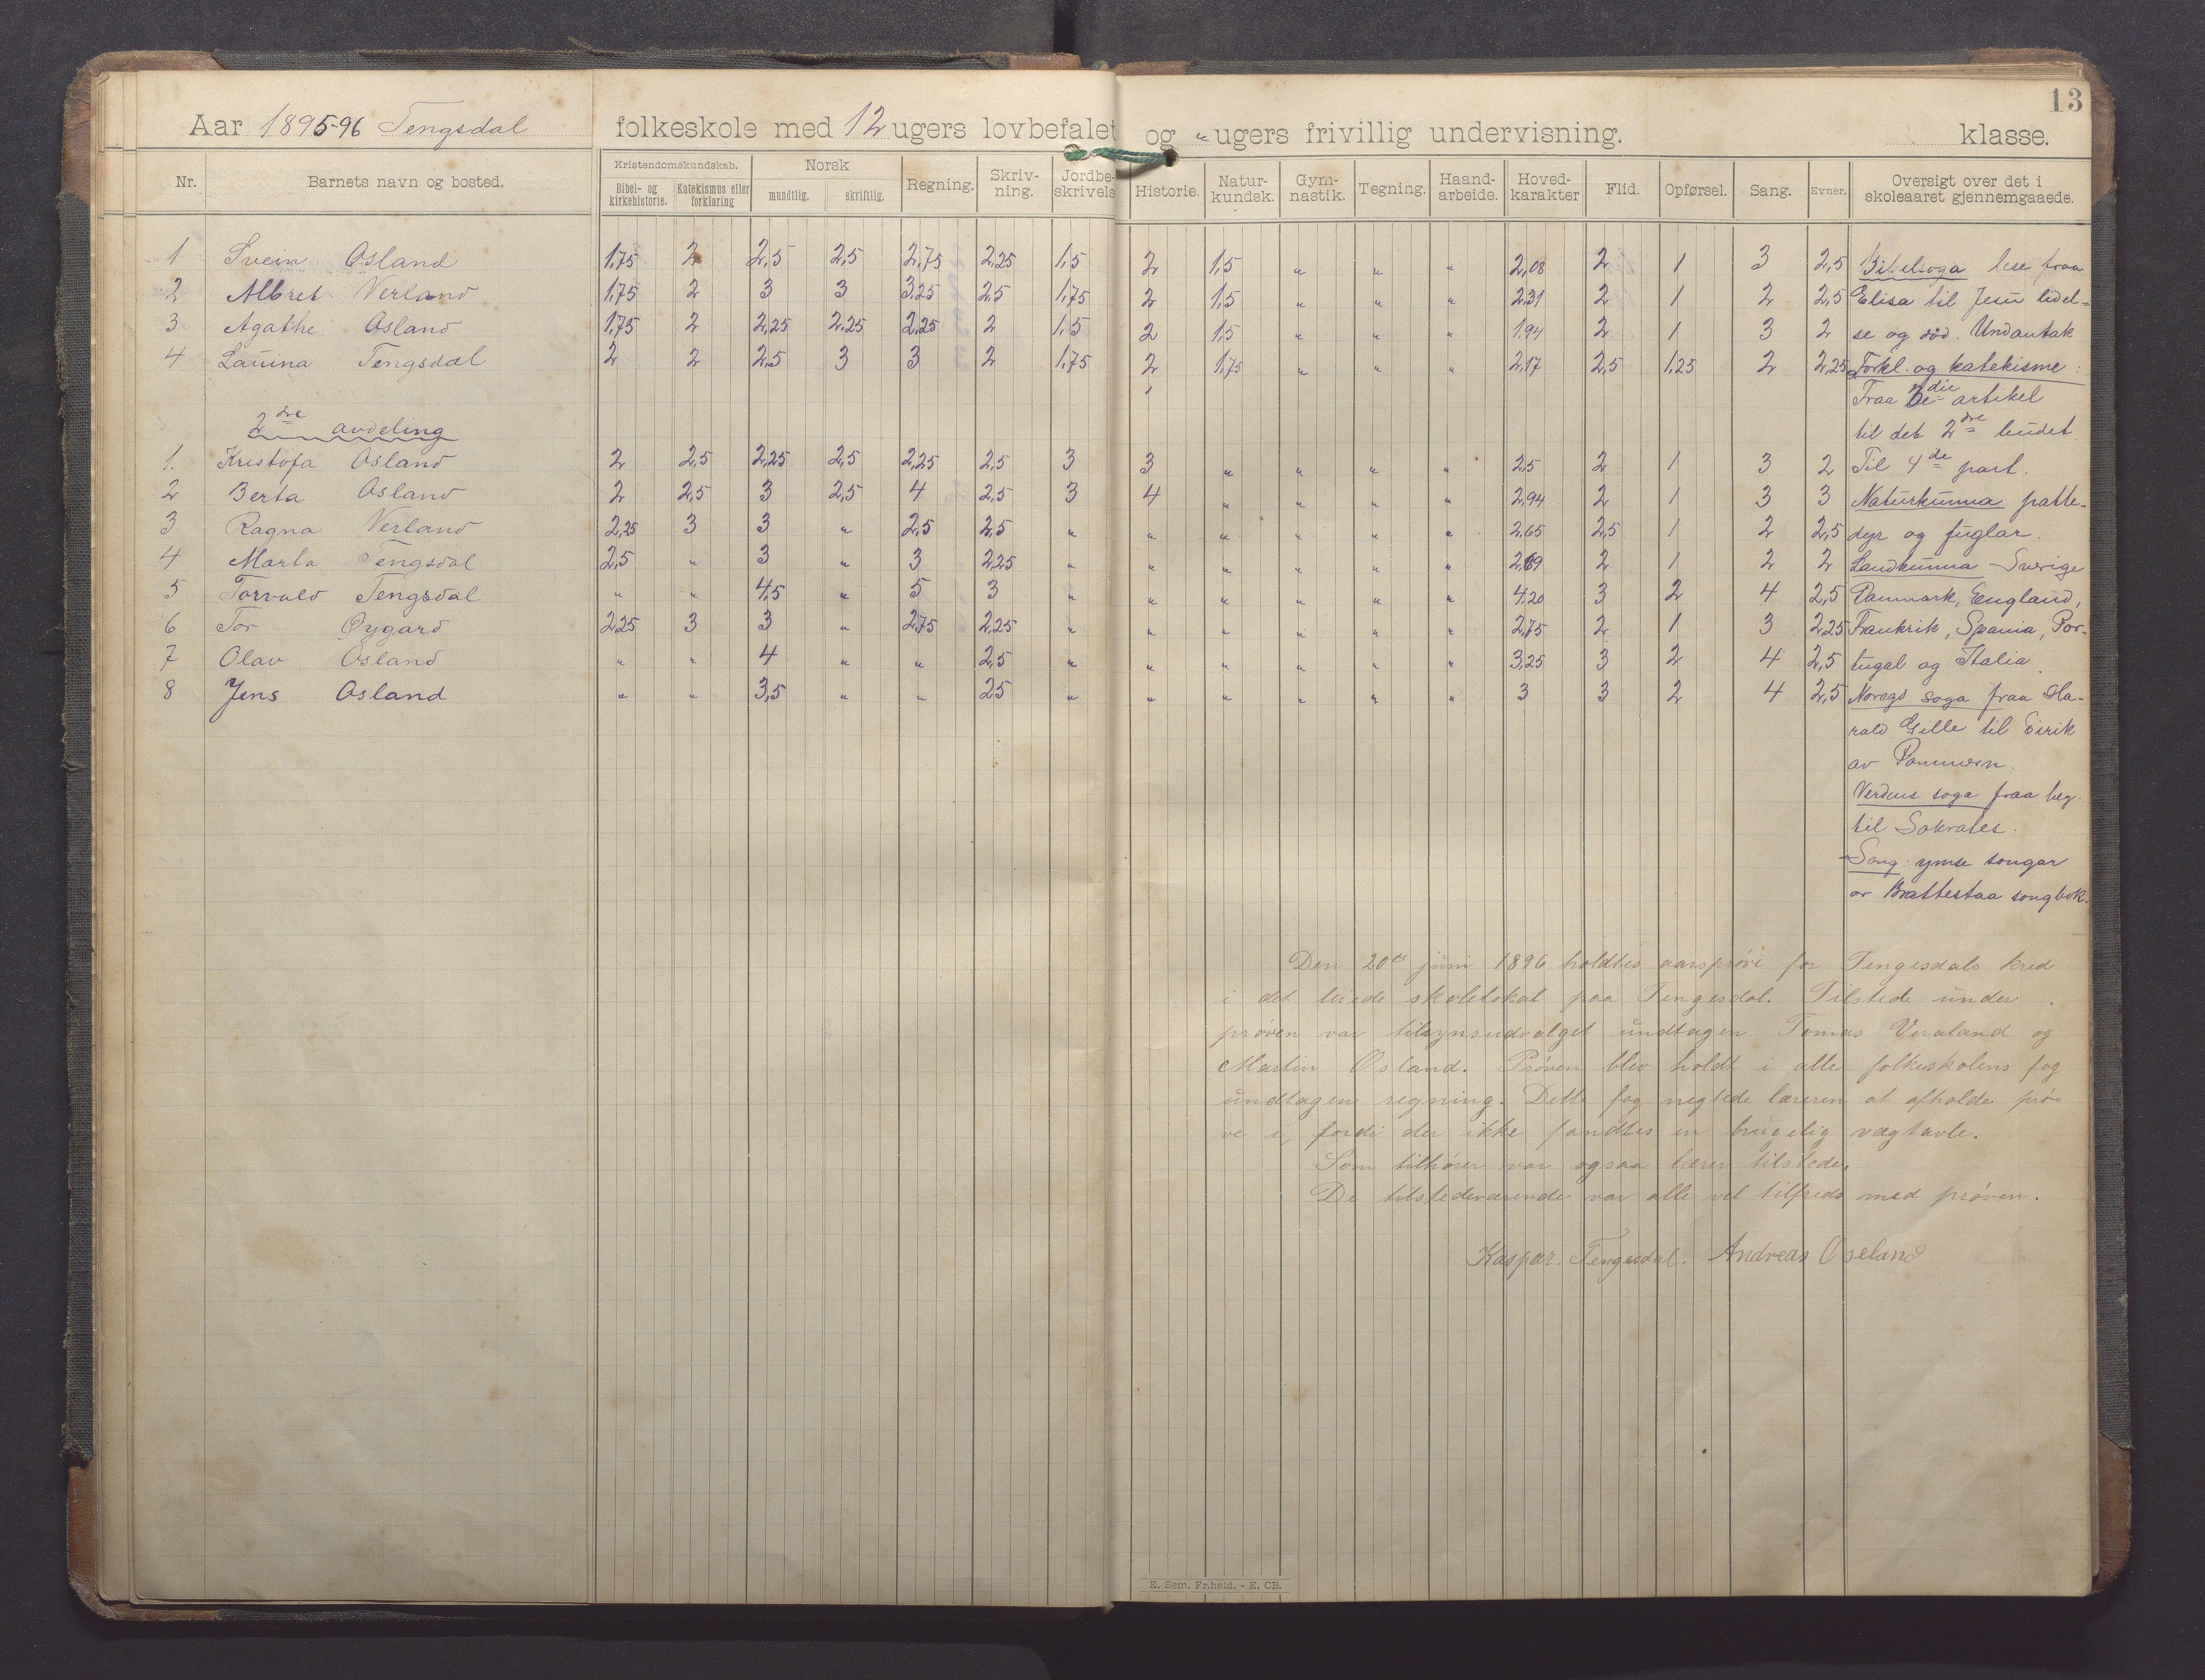 13
Aar 1895-96 Tengsdal folkeskole med 12 ugers lovbefalet og " ugers frivillig undervisning. klasse.
Nr. Barnets navn og bosted. Kristendomskundskab. Bibel- og kirkehistorie. Katekismus eller forklaring Norsk mundtlig. skriftlig. Regning. Skriv-ning. Jordbe-skrivels Historie. Natur-kundsk. Gym-nastik. Tegning. Haand-arbeide. Hoved-karakter Flid. Opførsel. Sang. Evner. Oversigt over det i skoleaaret gjennemgaaede.
1 Svein Osland 1,75 2 2,5 2,5 2,75 2,25 1,5 2 1,5 " " " 2,08 2 1 3 2,5 Bibelsoga lese fraa
2 Albret Verland 1,75 2 3 3 3,25 2,5 1,75 2 1,5 " " " 2,31 2 1 2 2,5 Elisa til Jesu lidel=
3 Agathe Osland 1,75 2 2,25 2,25 2,25 2 1,5 2 1,5 " " " 1,94 2 1 3 2 se og död. Undantak
4 Lauina Tengsdal 2 2 2,5 3 3 2 1,75 2 1,75 " " " 2,17 2,5 1,25 2 2,25 Forkl. og katekisme:
Fraa artikel
2dre avdeling til det 2dre budet
1. Kristofa Osland 2 2,5 2,25 2,5 2,25 2,5 3 3 " " " " 2,5 2 1 3 2 Til 4de part.
2 Berta Osland 2 2,5 3 2,5 4 2,5 3 4 " " " " 2,94 2 1 3 3 Naturkunna patte-
3 Ragna Verland 2,25 3 3 " 2,5 2,5 " " " " " " 2,65 2,5 1 2 2,5 dyr og fuglar.
4 Marta Tengsdal 2,5 " 3 " 3 2,25 " " " " " " 2,69 2 1 2 2 Landkunna Sverige
5 Torvald Tengsdal " " 4,5 " 5 3 " " " " " " 4,20 3 2 4 2,5 Danmark, England,
6 Tor Øygard 2,25 3 3 " 2,75 2,25 " " " " " " 2,75 2 1 3 2,25 Frankrik, Spania, Por-
7 Olav Osland " " 4 " " 2,5 " " " " " " 3,25 3 2 4 2,5 tugal og Italia.
8 Jens Osland " " 3,5 " " 25 " " " " " " 3 3 2 4 2,5 Noregs soga fraa Ha-
rald Gille til Eirik
av Pommern.
Verdens soga fraa beg.
til Sokrates.
Song: ymse songar
av Brattestaa songbok.
Den 20de juni 1896 holdtes aarsprøve for Tengesdals kred
i det leiede skolelokal paa Tengesdal. Tilstede under
prøven var tilsynsudvalget undtagen Tomas Veraland og
Martin Osland. Prøven blev holdt i alle folkeskolens fag
undtagen regning. Dette fag negtede læreren at afholde prø-
ve i, fordi der ikke fandtes en brugelig vægtavle.
Som tilhører var ogsaa lærer tilstede.
De tilstedeværende var alle vel tilfreds med prøven.
Kaspar Tengesdal. Andreas Oseland
E. Sem, Fr.hald. - E. CB.